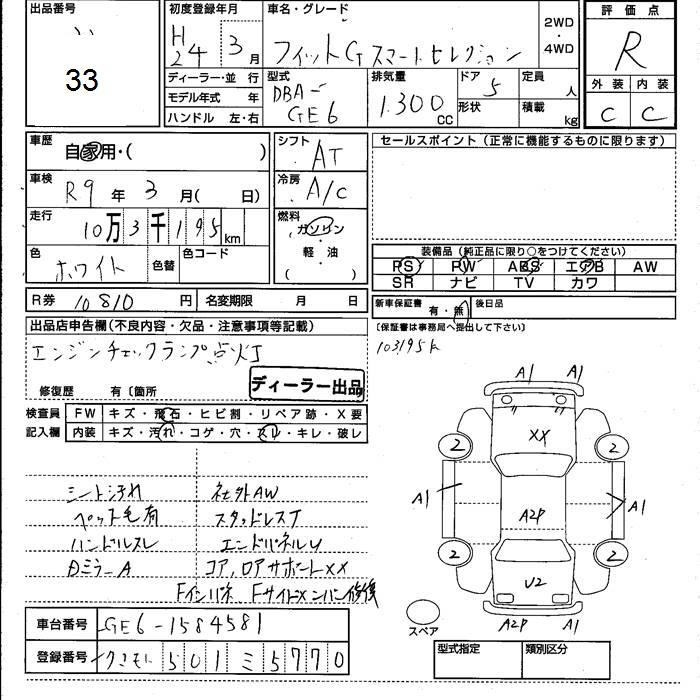 出品番号 初度登録年月 車名・グレード 2WD・4WD 評価点
33 H24年3月 フィットGスマートセレクション R
ディーラー・並行 型式 排気量 ドア 定員 人 外装 内装
モデル年式 年 DBA-GE6 1.300cc 5 形状 積載 kg C C
ハンドル 左・右
車歴 自家用・( ) シフト AT セールスポイント (正常に機能するものに限ります)
車検 R9年3月(日) 冷房 A/C
走行 10万3千195km 燃料 ガソリン・軽油 ( )
色 ホワイト 色替 色コード
装備品(純正品に限り○をつけてください)
PS PW ABS エアB AW
SR ナビ TV カワ
R券 10810円 名変期限 月 日 新車保証書 有・無 後日品
(保証書は事務局へ提出して下さい)
出品店申告欄(不良内容・欠品・注意事項等記載)
エンジンチェックランプ点灯 103195k
修復歴 有〔箇所 ディーラー出品
検査員記入欄 FW キズ・飛石・ヒビ割・リペア跡・X要
内装 キズ・汚れ・コゲ・穴・スレ・キレ・破レ
シート汚れ 社外AW
ペット毛有 スタッドレスT
ハンドルスレ エンドパネルU
DミラーA コア,ロアサポートXX
Fインパネ Fサイドメンバー修後
A1 A1
XX
2 2
A1 A2P A1
2 2
U2
スペア A2P A1
車台番号 GE6-1584581
登録番号 501 ミ 5770
型式指定 類別区分